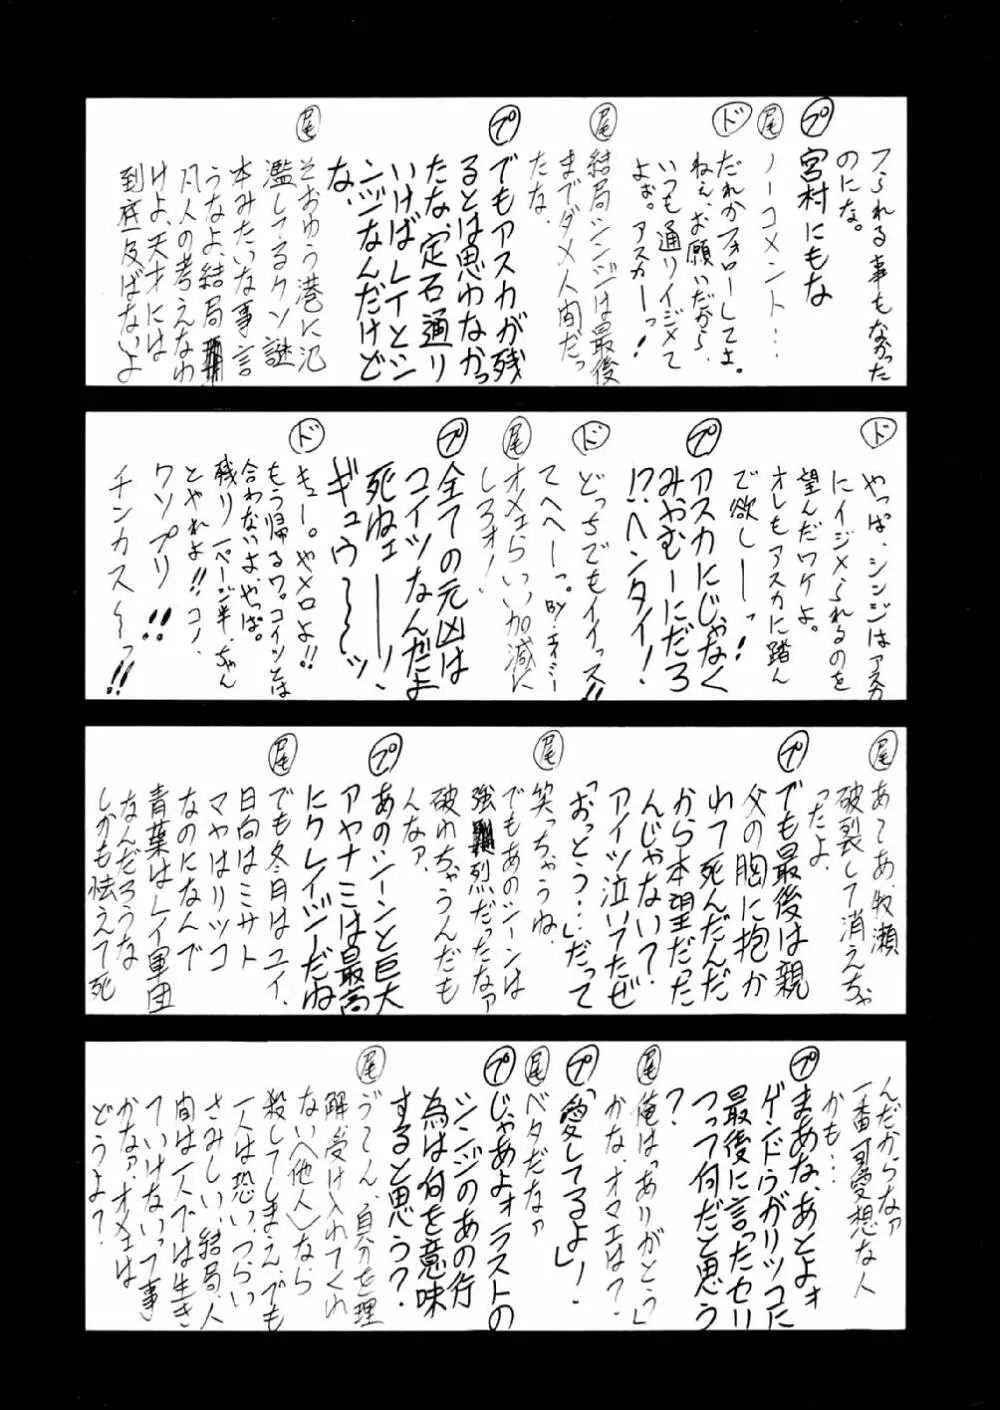 フられる事もなかった
のにな。
プ 宮村にもな
尾 ノーコメント…
ド だれかフォローしてよ。
ねぇ、お願いだから、
いつも通りイジメて
よぉ。アスカーっ!
尾 結局シンジは最後
までダメ人間だっ
たな。
プ でもアスカが残
るとは思わなかっ
たな、定石通り
いけばレイとシ
ンジなんだけど
な、
尾 そおゆう巷に氾
濫してるクソ謎
本みたいな事言
うなよ、結局
凡人の考えなわ
けよ、天才には
到底及ばないよ
ド やっぱ、シンジはアスカ
にイジメられるのを
望んだワケよ。
オレもアスカに踏ん
で欲しーーっ!
プ アスカにじゃなく
みやむーにだろ
!?ヘンタイ!
ド どっちでもイイっス!!
てへへーっ。by.ネイミー
尾 オメェらいい加減に
しろォ!
プ 全ての元凶は
コイツなんだよ
死ねェーーー!、
ギュウ〜〜〜ッ
ド キュー。ヤメロよ!!
もう帰るワ。コイツとは
合わないよ、やっぱ。
残り一ページ半、ちゃん
とやれよ!!コノ、
クソプリ!!
チンカス〜〜っ!!
尾 あてあ、牧瀬
破裂して消えちゃ
ったよ
プ でも最後は親
父の胸に抱か
れて死んだんだ
から本望だった
んじゃない?
アイツ泣いてたぜ
「おっとう…」だって
尾 笑っちゃうね、
でもあのシーンは
強烈だったなァ
破れちゃうんだも
んなァ、
プ あのシーンと巨大
アヤナミは最高
にクレイジーだね
尾 でも冬月はユイ、
日向はミサト
マヤはリツコ
なのになんで
青葉はレイ軍団
なんだろうな
しかも怯えて死
んだからなァ
一番可愛想な人
かも…
プ まあな、あとよォ
ゲンドウがリツコに
最後に言ったセリ
フって何だと思う
?
尾 俺は「ありがとう」
かな、オマエは?
プ 「愛してるよ」!
尾 ベタだなァ
プ じゃあよォラストの
シンジのあの行
為は何を意味
すると思う?
尾 うてん、自分を理
解受け入れてくれ
ない〈他人〉なら
殺してしまえ、でも
一人は恐い、つらい
さみしい、結局、人
間は一人では生き
ていけないって事
かなァ、オメエは
どうよ?